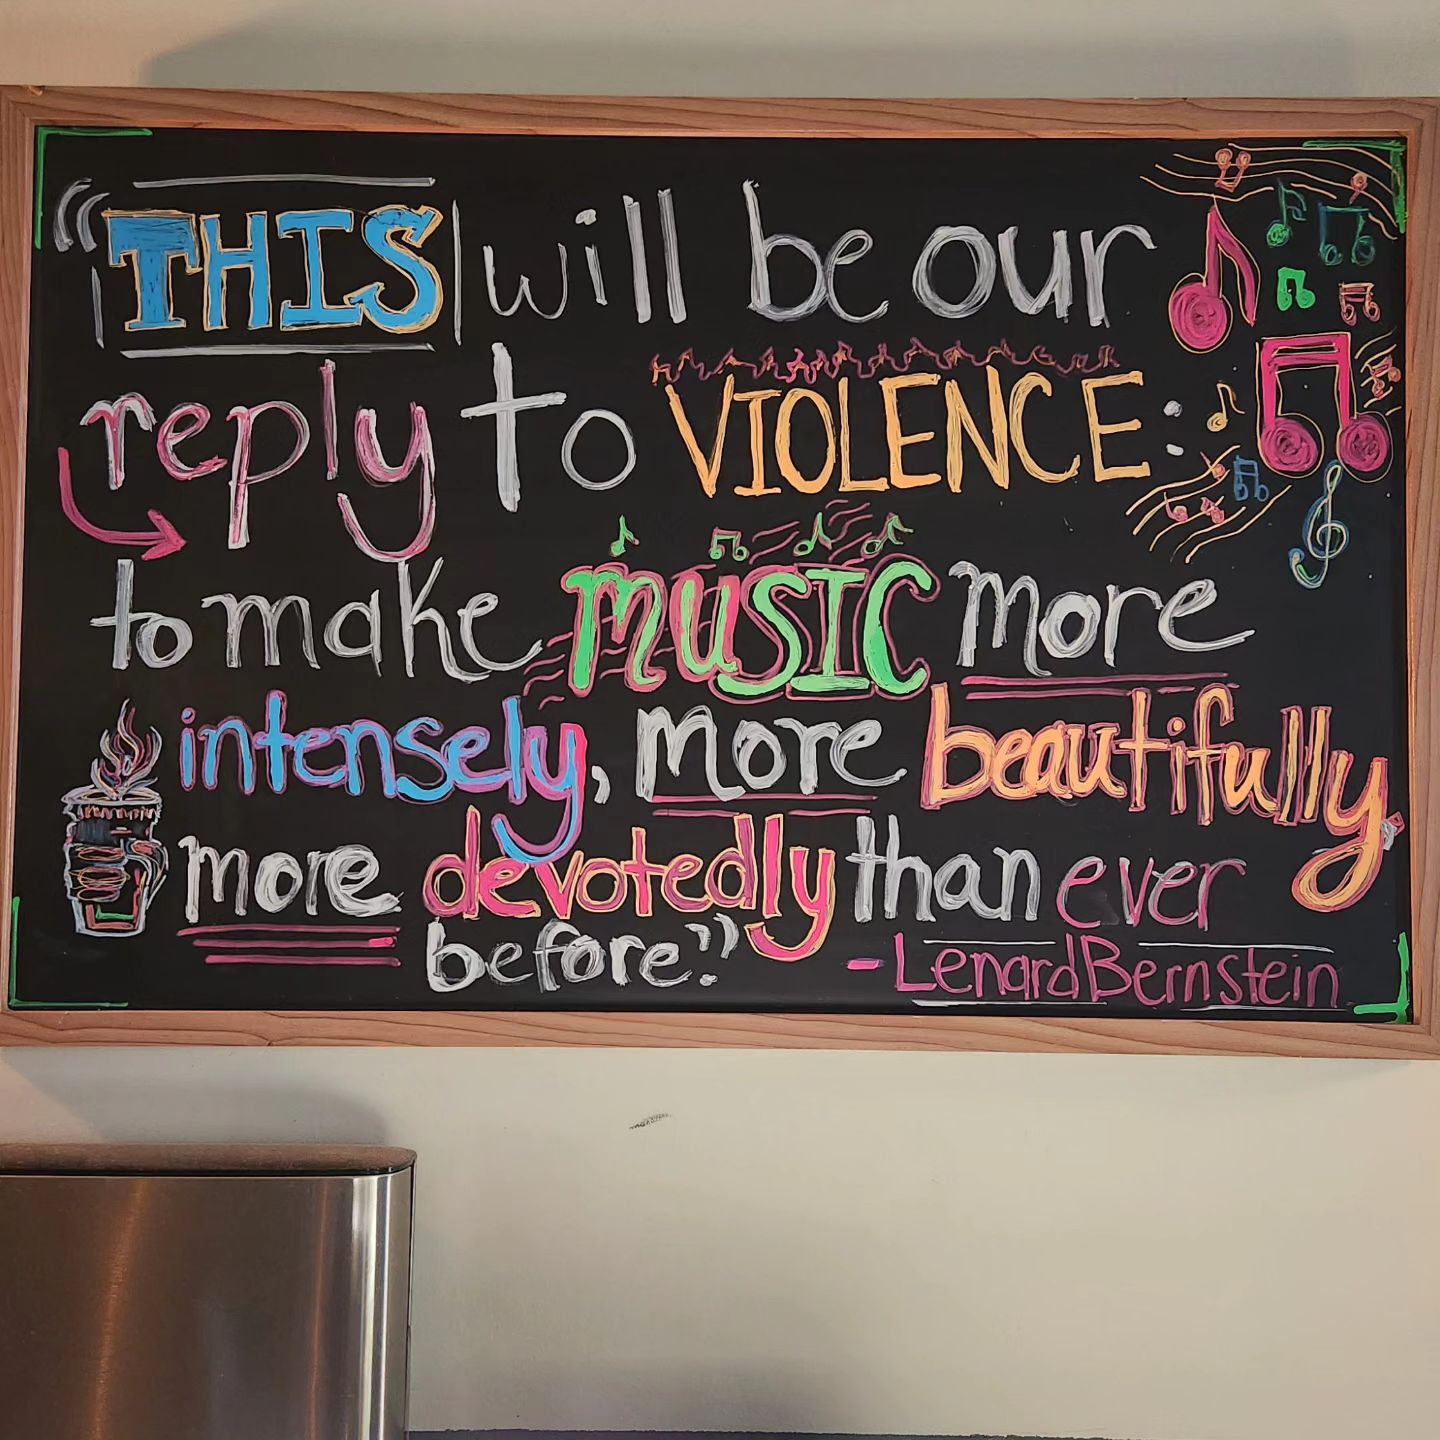 "THIS will be our
reply to VIOLENCE:
to make music more
intensely, more beautifully,
more devotedly than ever
before".
- Lenard Bernstein